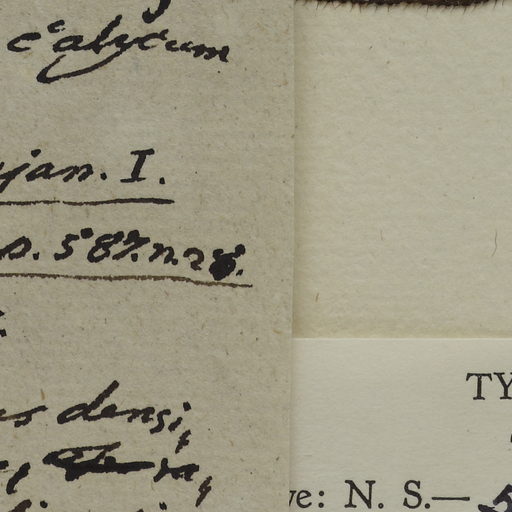 calycum
jan. I.
p. 587. n. 28.
densi,
TY
ve: N. S.—5